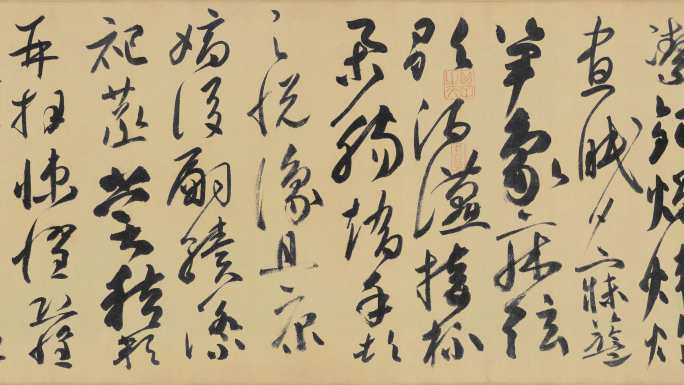 潔銀燭煒煌
晝眠夕寐藍
筍象床弦
歌酒讌接杯
舉觴矯手頓
足悅豫且康
嫡後嗣續祭
祀蒸嘗稽顙
再拜悚懼恐惶